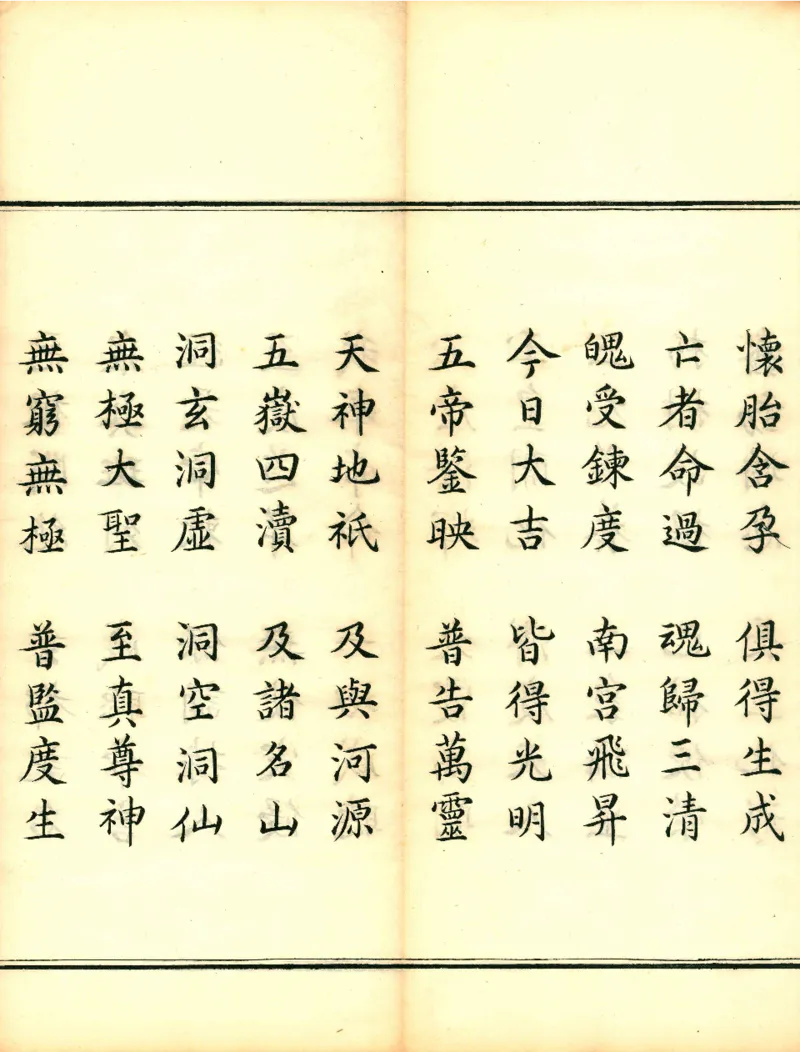 懷胎含孕 俱得生成
亡者命過 魂歸三清
魄受鍊度 南宮飛昇
今日大吉 皆得光明
五帝鑒映 普告萬靈
天神地祇 及與河源
五嶽四瀆 及諸名山
洞玄洞虛 洞空洞仙
無極大聖 至真尊神
無窮無極 普監度生